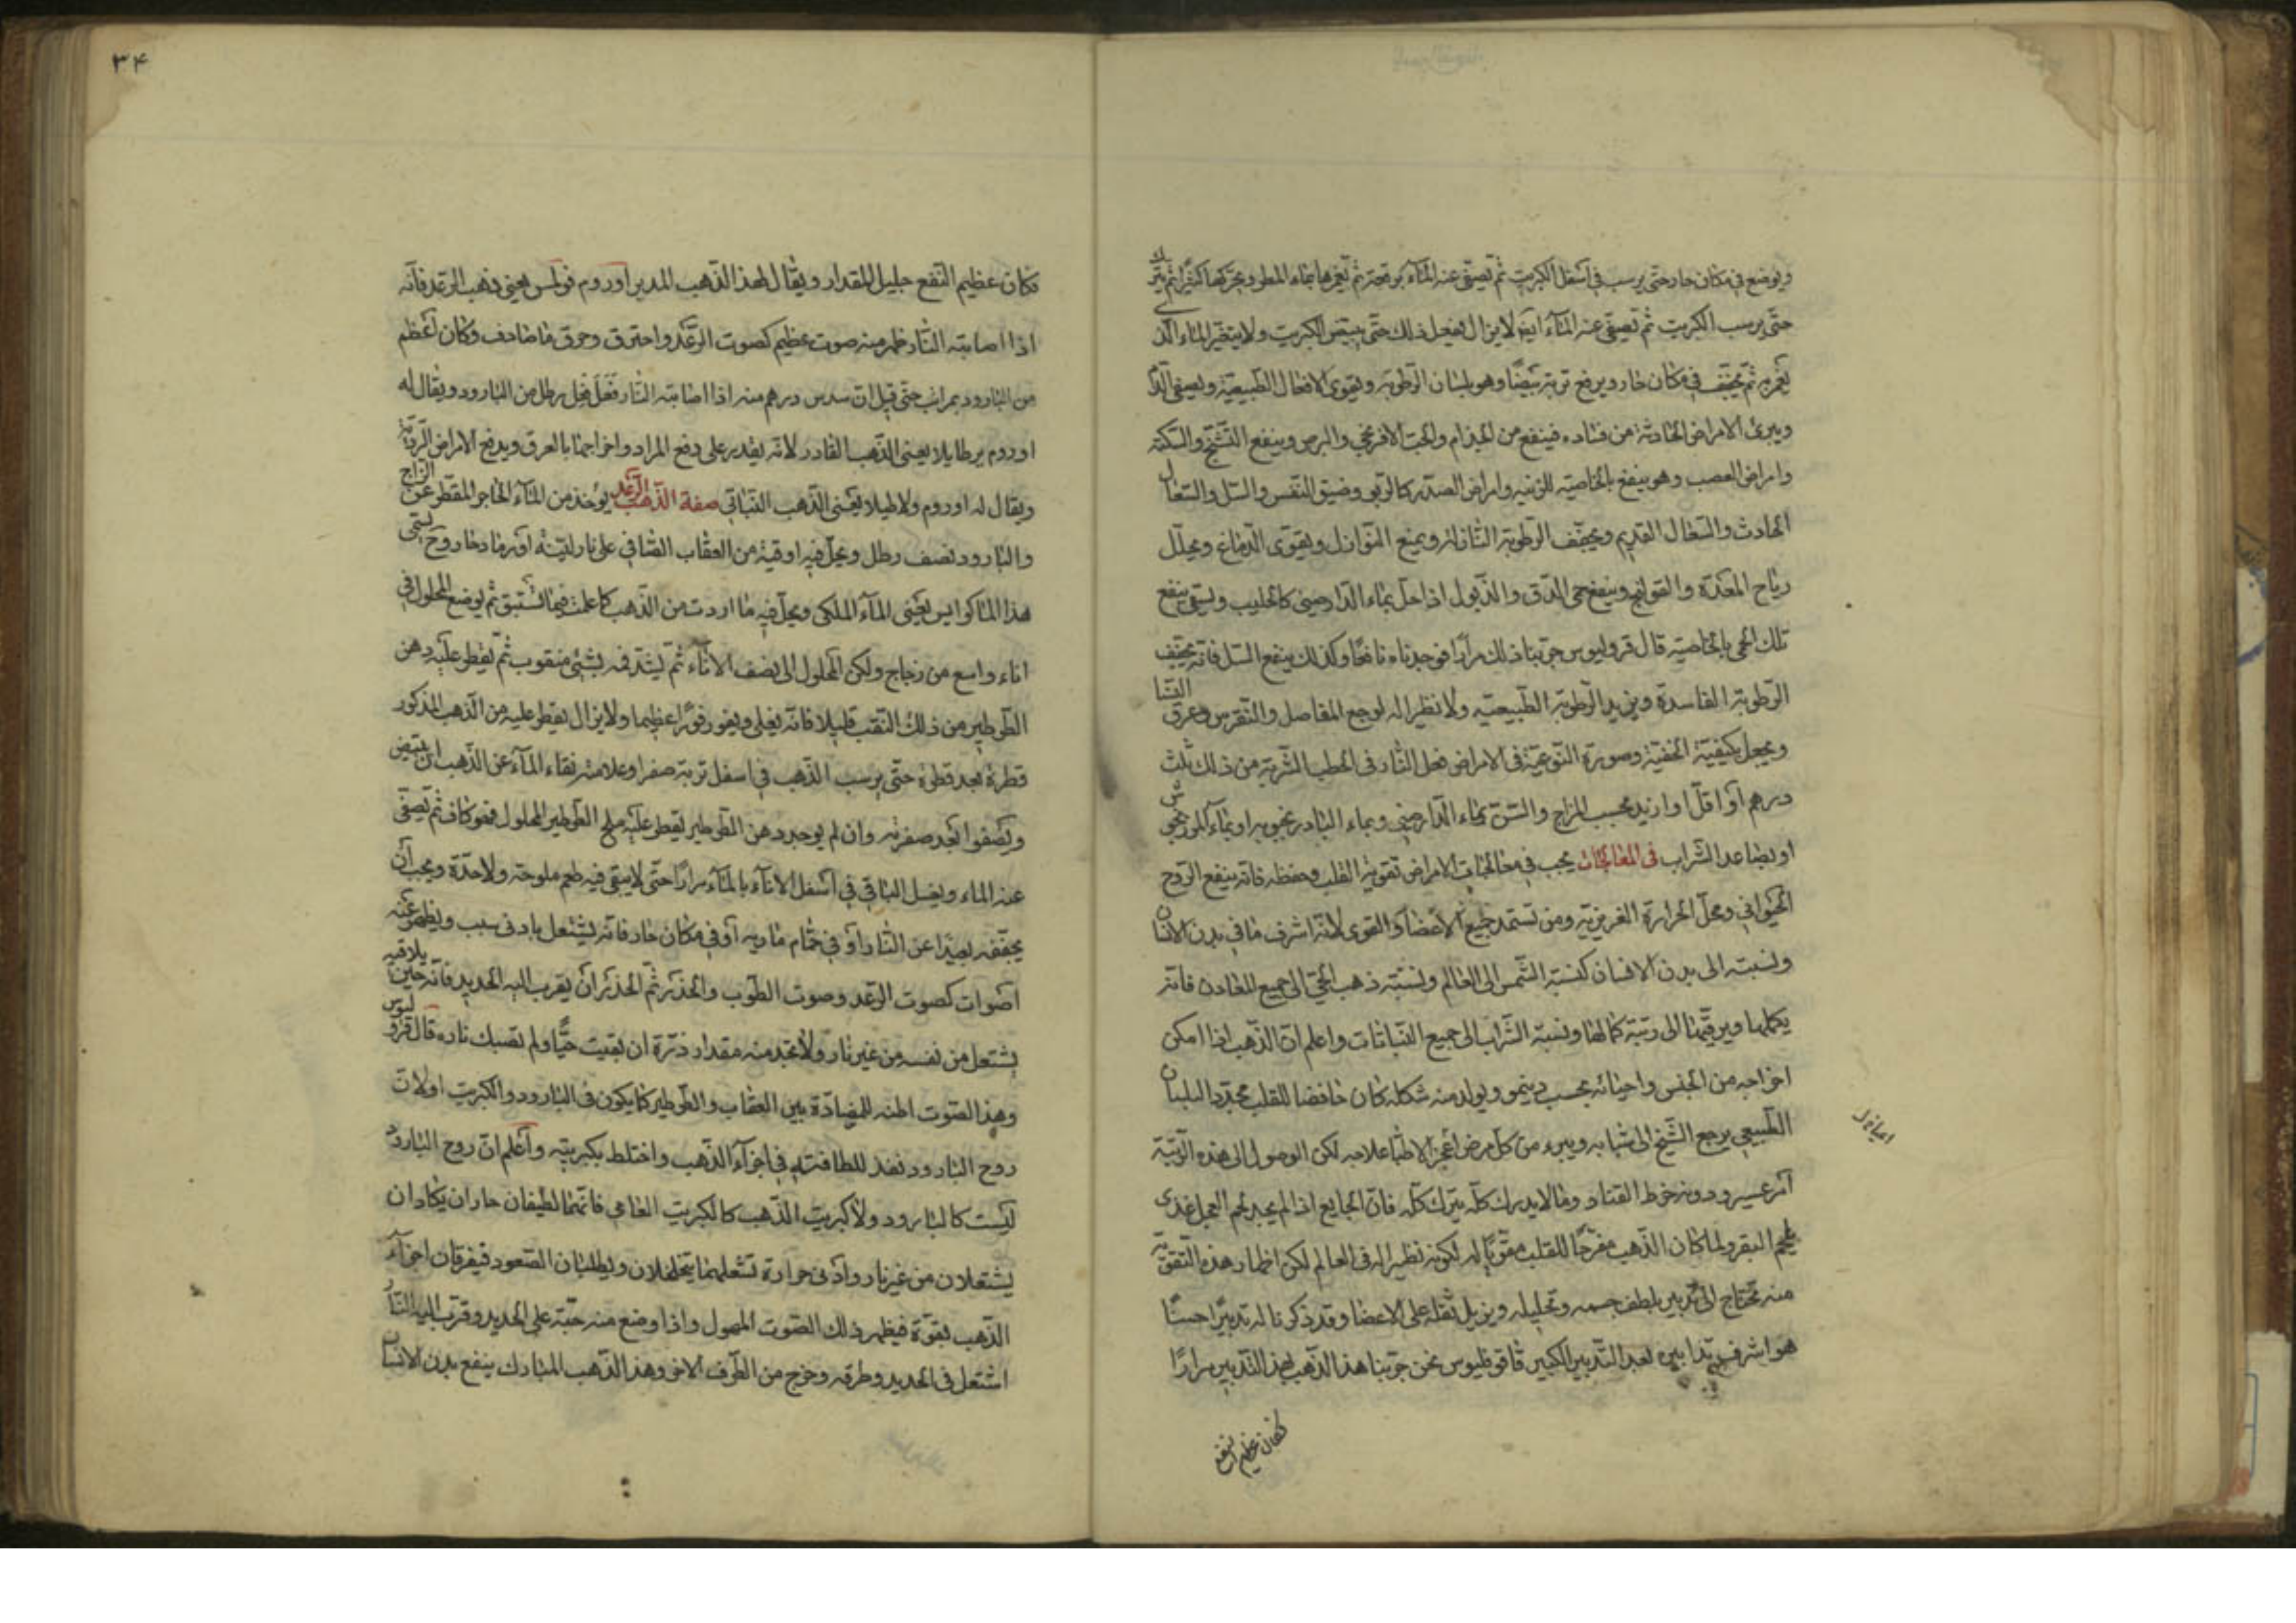 ويوضع في مكان حار حتى يرسب في اسفل الكبريت ثم تصفى عنه الماء برقة ثم تغمرها بماء المطر وتحركها كثيرا ثم يترك
حتى يرسب الكبريت ثم تصفى عنه الماء ايضا لا يزال يفعل ذلك حتى يبيض الكبريت ولا يتغير الماء الذي
يغمر به ثم يجفف في مكان حار ويرفع تربة بيضا وهو بلسان الرطوبة ويقوى الافعال الطبيعية ويصفى الدم
ويبرئ الامراض الحادثة من فساده فينفع من الجذام والحب الافرنجي والبرص وينفع التشنج والسكتة
وامراض العصب وهو ينفع بالخاصية للرئة وامراض الصدر كالربو وضيق النفس والسل والسعال
الحادث والسعال القديم ويجفف الرطوبة النازلة ويمنع النوازل ويقوى الدماغ ويحلل
رياح المعدة والقولنج وينفع حمى الدق والذبول اذا حل بماء الدارصيني كالحليب ويسقى ينفع
تلك الحمى بالخاصية قال قروليوس جربنا ذلك مرارا فوجدناه نافعا وكذلك ينفع السل فانه يجفف
الرطوبة الفاسدة ويزيد الرطوبة الطبيعية ولا نظير له لوجع المفاصل والنقرس وعرق النسا
ويجعل بكيفية الخفية وصورة النوعية في الامراض فعل النار في الحطب الشربة من ذلك ثلث
درهم او اقل او ازيد بحسب المزاج والسن بماء الدارصيني وبماء البادرنجبويه او بماء
او بصاعد الشراب في المعالجات يجب في معالجات الامراض تقوية القلب وحفظه فانه ينفع الروح
الحيواني ومحل الحرارة الغريزية ومن تستمد جميع الاعضاء والقوى لانه اشرف ما في بدن الانسان
ونسبته الى بدن الانسان كنسبة الشمس الى العالم ونسبة ذهب الحي الى جميع المعادن فانه
يكملها ويرقيها الى رتبة كمالها ونسبة الشراب الى جميع النباتات واعلم ان الذهب اذا امكن
اخراجه من الحبس واحيائه بحسب ينمو ويولد منه شكله كان حافضا للقلب مجددا البلسان
الطبيعي يرجع الشيخ الى شبابه ويبرء من كل مرض اعجز الاطبا علاجه لكن الوصول الى هذه الرتبة
امر عسير ودونه خرط القتاد وما لا يدرك كله يترك كله فان الجايع اذا لم يجد لحم العجل غذي
بلحم البقر ولما كان الذهب مفرحا للقلب مقويا له لكونه نظيرا له في العالم لكن اظهار هذه التقوية
منه تحتاج الى تدبير يلطف جسمه وتحليله ويزيل ثقله على الاعضا وقد ذكرنا له تدبيرا حسنا
هو اشرف تدابيره بعد التدبير الكبير قال قروليوس نحن جربنا هذا الذهب بهذا التدبير مرارا
فكان عظيم النفع
٣٤
فكان عظيم النفع جليل المقدار ويقال لهذا الذهب المدبر اوروم فولمنس يعني ذهب الرعد فانه
اذا اصابته النار ظهر منه صوت عظيم كصوت الرعد واحترق وحرق ما صادف وكان اعظم
من البارود بمراتب حتى قيل ان سدس درهم منه اذا اصابته النار فعل فعل رطل من البارود ويقال له
اوروم برطايلا يعني الذهب القادر لانه يقدر على دفع المراد واخراجها بالعرق ويدفع الامراض الردية
ويقال له اوروم ولاطيلا يعنى الذهب النباتي صفة الذهب الرعد يوخذ من الماء الحاد المقطر عن الزاج
والبارود نصف رطل ويحل فيه اوقية من العقاب الصافي على نار لينة او رماد حار وح يسمى
هذا الماء كوايس يعنى الماء الملكي ويحل فيه ما اردت من الذهب كما علمت فيما سبق ثم يوضع المحلول في
اناء واسع من زجاج ولكن المحلول الى نصف الاناء ثم يشد فمه بشئ منقوب ثم تقطر عليه دهن
الطرطير من ذلك النقب قليلا فانه يغلي ويفور فورا عظيما ولا يزال يقطر عليه من الدهن المذكور
قطرة بعد قطرة حتى يرسب الذهب في اسفل تربة صفرا وعلامة نقاء الماء عن الذهب ان يبيض
ويصفوا بعد صفرته وان لم يوجد دهن الطرطير يقطر عليه ملح الطرطير المحلول فهو كاف ثم تصفى
عنه الماء ويغسل الباقي في اسفل الاناء بالماء مرارا حتى لا يبقى فيه طعم ملوحة ولا حدة ويجب ان
يجففه بعيدا عن النار او في حمام مارية او في مكان حار فانه يشتعل بادنى سبب ويظهر عنه
اصوات كصوت الرعد وصوت الطوب والحذر ثم الحذر ان يقرب اليه الحديد فانه حين يلاقيه
يشتعل من نفسه من غير نار ولا تجد منه مقدار ذرة ان بقيت حيا ولم تصبك ناره قال قروليوس
وهذا الصوت المضادة بين العقاب والطرطير كما يكون في البارود والكبريت او لان
روح البارود نفذ للطافته في اجزاء الذهب واختلط بكبريته واعلم ان روح البارود
ليست كالبارود ولا كبريت الذهب كالكبريت العامي فانهما لطيفان حاران يكادان
يشتعلان من غير نار وادنى حرارة تشعلهما يتخلخلان ويطلبان الصعود فيفرقان اجزاء
الذهب بقوة فيظهر ذلك الصوت المهول واذا وضع منه حبة على الحديد وقرب اليه النار
اشتعل في الحديد وطرقه وخرج من الطرف الاخر وهذا الذهب المبارك ينفع بدن الانسان